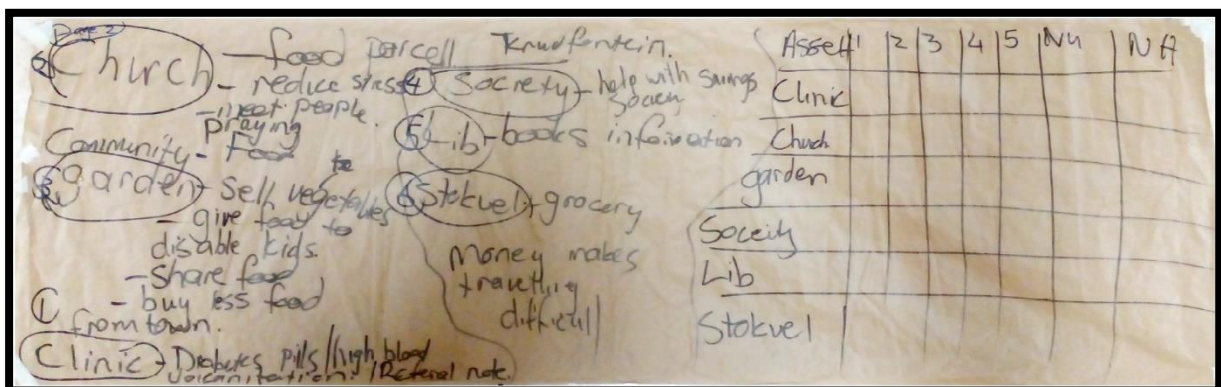 Page 2
2 Church - food parcell
- reduce stress
- meet people
praying
Community - Food
3 garden - sell vegetables
- give food to
disable kids.
- share food
- buy less food
from town.
1
Clinic - Diabetes pills/high blood
/Referal note.
4 Society - help with savings
5 Lib - books information
6 Stokvel - grocery
Money makes
travelling
difficult
Asset 1 2 3 4 5 NU NA
Clinic
Church
garden
Soceity
Lib
Stokvel